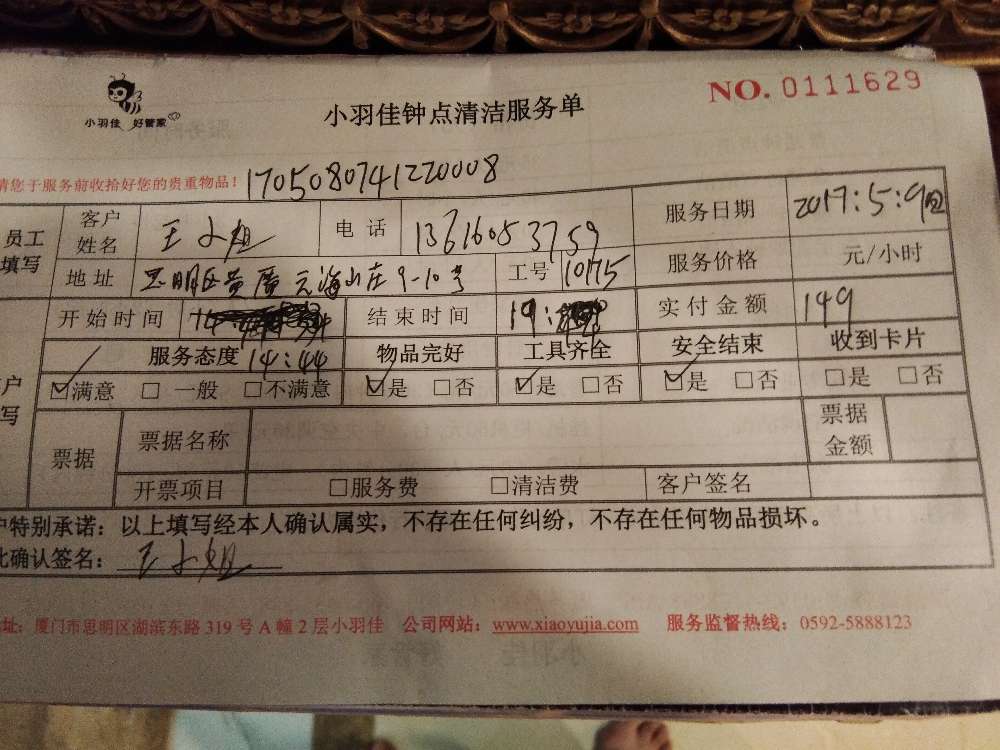 NO. 0111629
小羽佳 好管家
小羽佳钟点清洁服务单
请您于服务前收拾好您的贵重物品！ 1705080741220008
员工填写 客户姓名 王小姐 电话 13616053759 服务日期 2017:5:9
地址 思明区黄厝云海山庄9-10号 工号 10175 服务价格 元/小时
开始时间 结束时间 19: 实付金额 149
服务态度 14:44 物品完好 工具齐全 安全结束 收到卡片
☑满意 □一般 □不满意 ☑是 □否 ☑是 □否 ☑是 □否 □是 □否
票据 票据名称 票据金额
开票项目 □服务费 □清洁费 客户签名
户特别承诺：以上填写经本人确认属实，不存在任何纠纷，不存在任何物品损坏。
此确认签名： 王小姐
址：厦门市思明区湖滨东路 319 号 A 幢 2 层小羽佳 公司网站：www.xiaoyujia.com 服务监督热线：0592-5888123